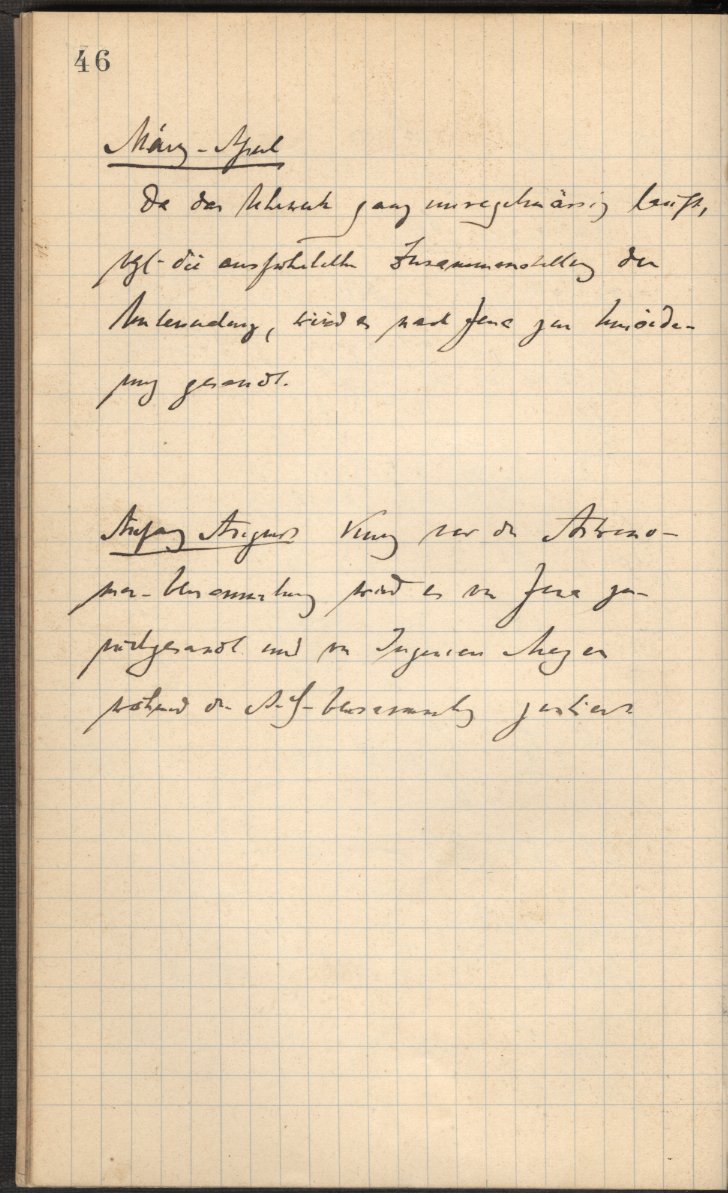 46
März - April
Da das Uhrwerk ganz unregelmässig läuft,
vgl. die ausführliche Zusammenstellung der
Untersuchung, wird es nach Jena zur Umände-
rung gesandt.
Anfang August Kurz vor der Astrono-
men-Versammlung wird es von Jena zu-
rückgesandt und von Ingenieur Meyer
während der A.G.-Versammlung justiert